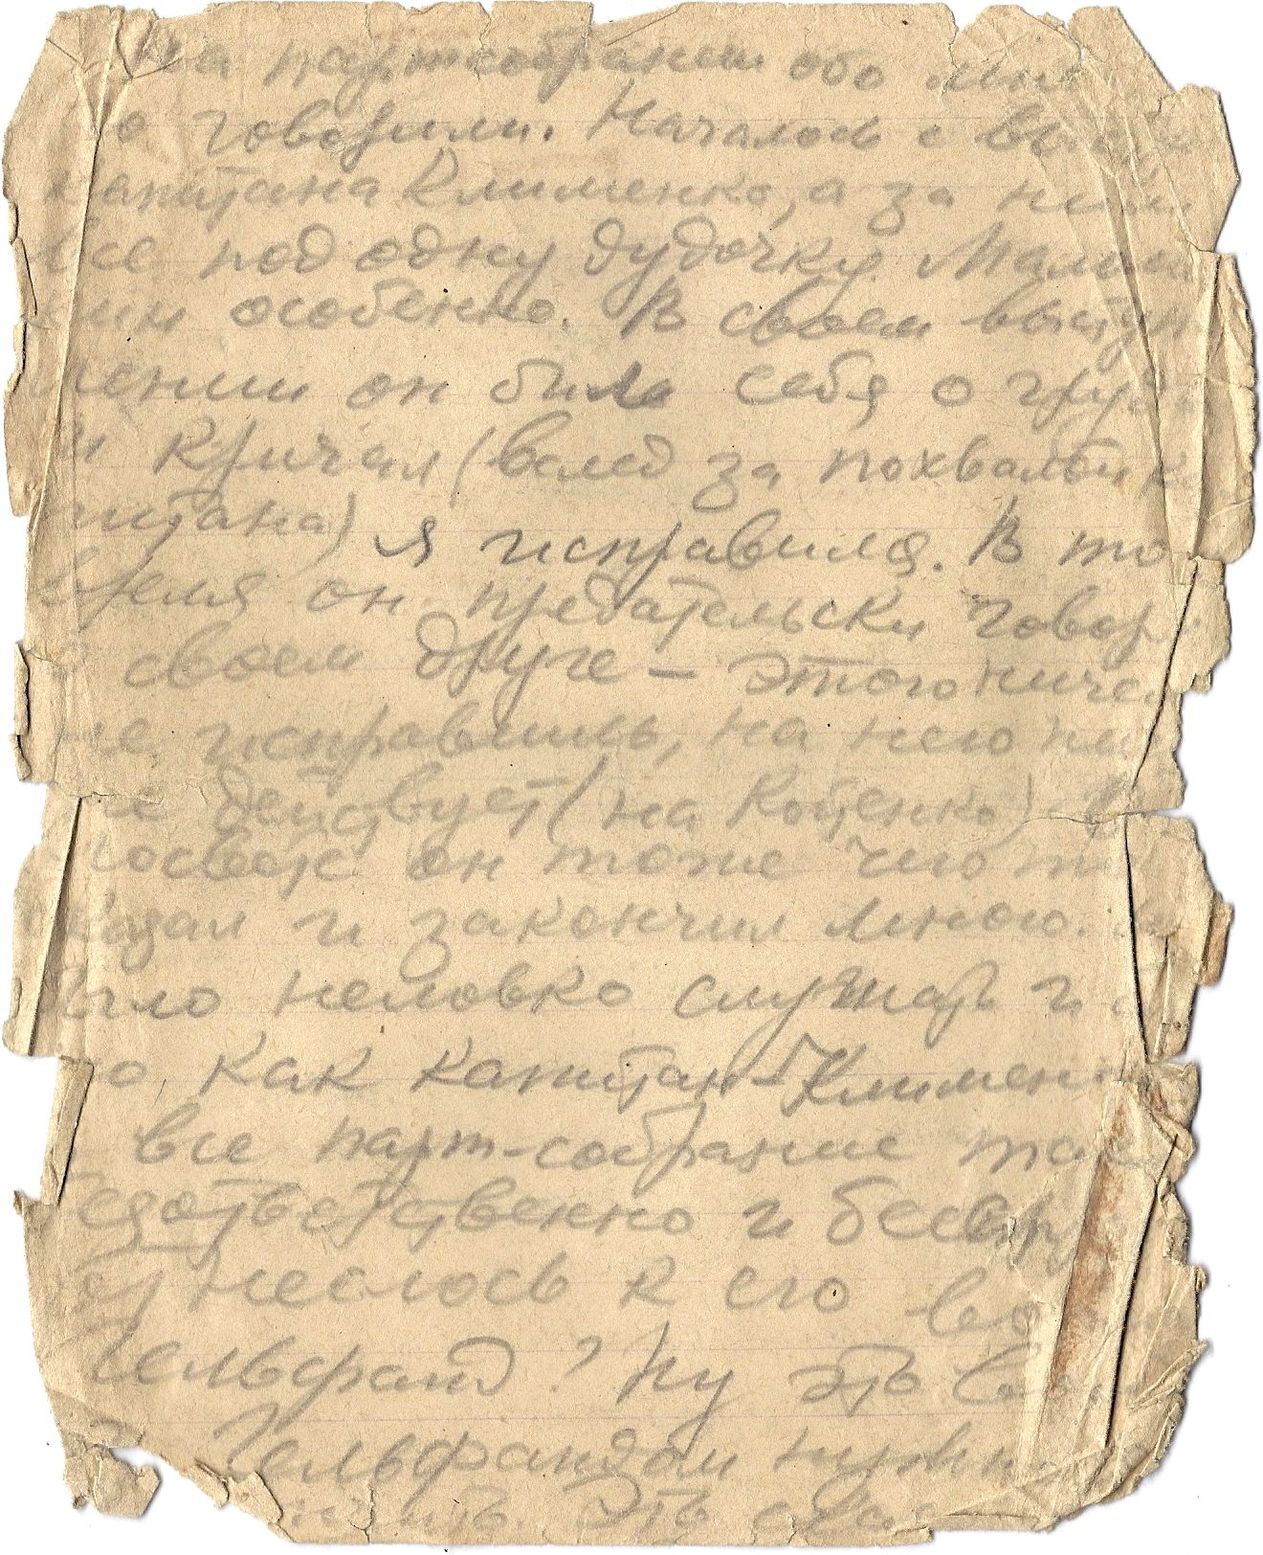 на партсобрании обо мне
о говорили. Началось с вы
капитана Клименко, а за ним
все под одну дудочку. Малы
ин особенно. В своем выступ
лении он бил себя о груд
и кричал (вслед за похвалой
питана) я исправился. В то
время он предательски говор
своем друге – этого ниче
не исправишь, на него ни
не действует (на Коценко)
он тоже что т
казал и закончил мною.
было неловко слушать и
о как капитан-Клименк
все парт-собрание так
безответственно и
отнеслось к его во
Гельфанд? Ну это
Гельфандом нужн
Это